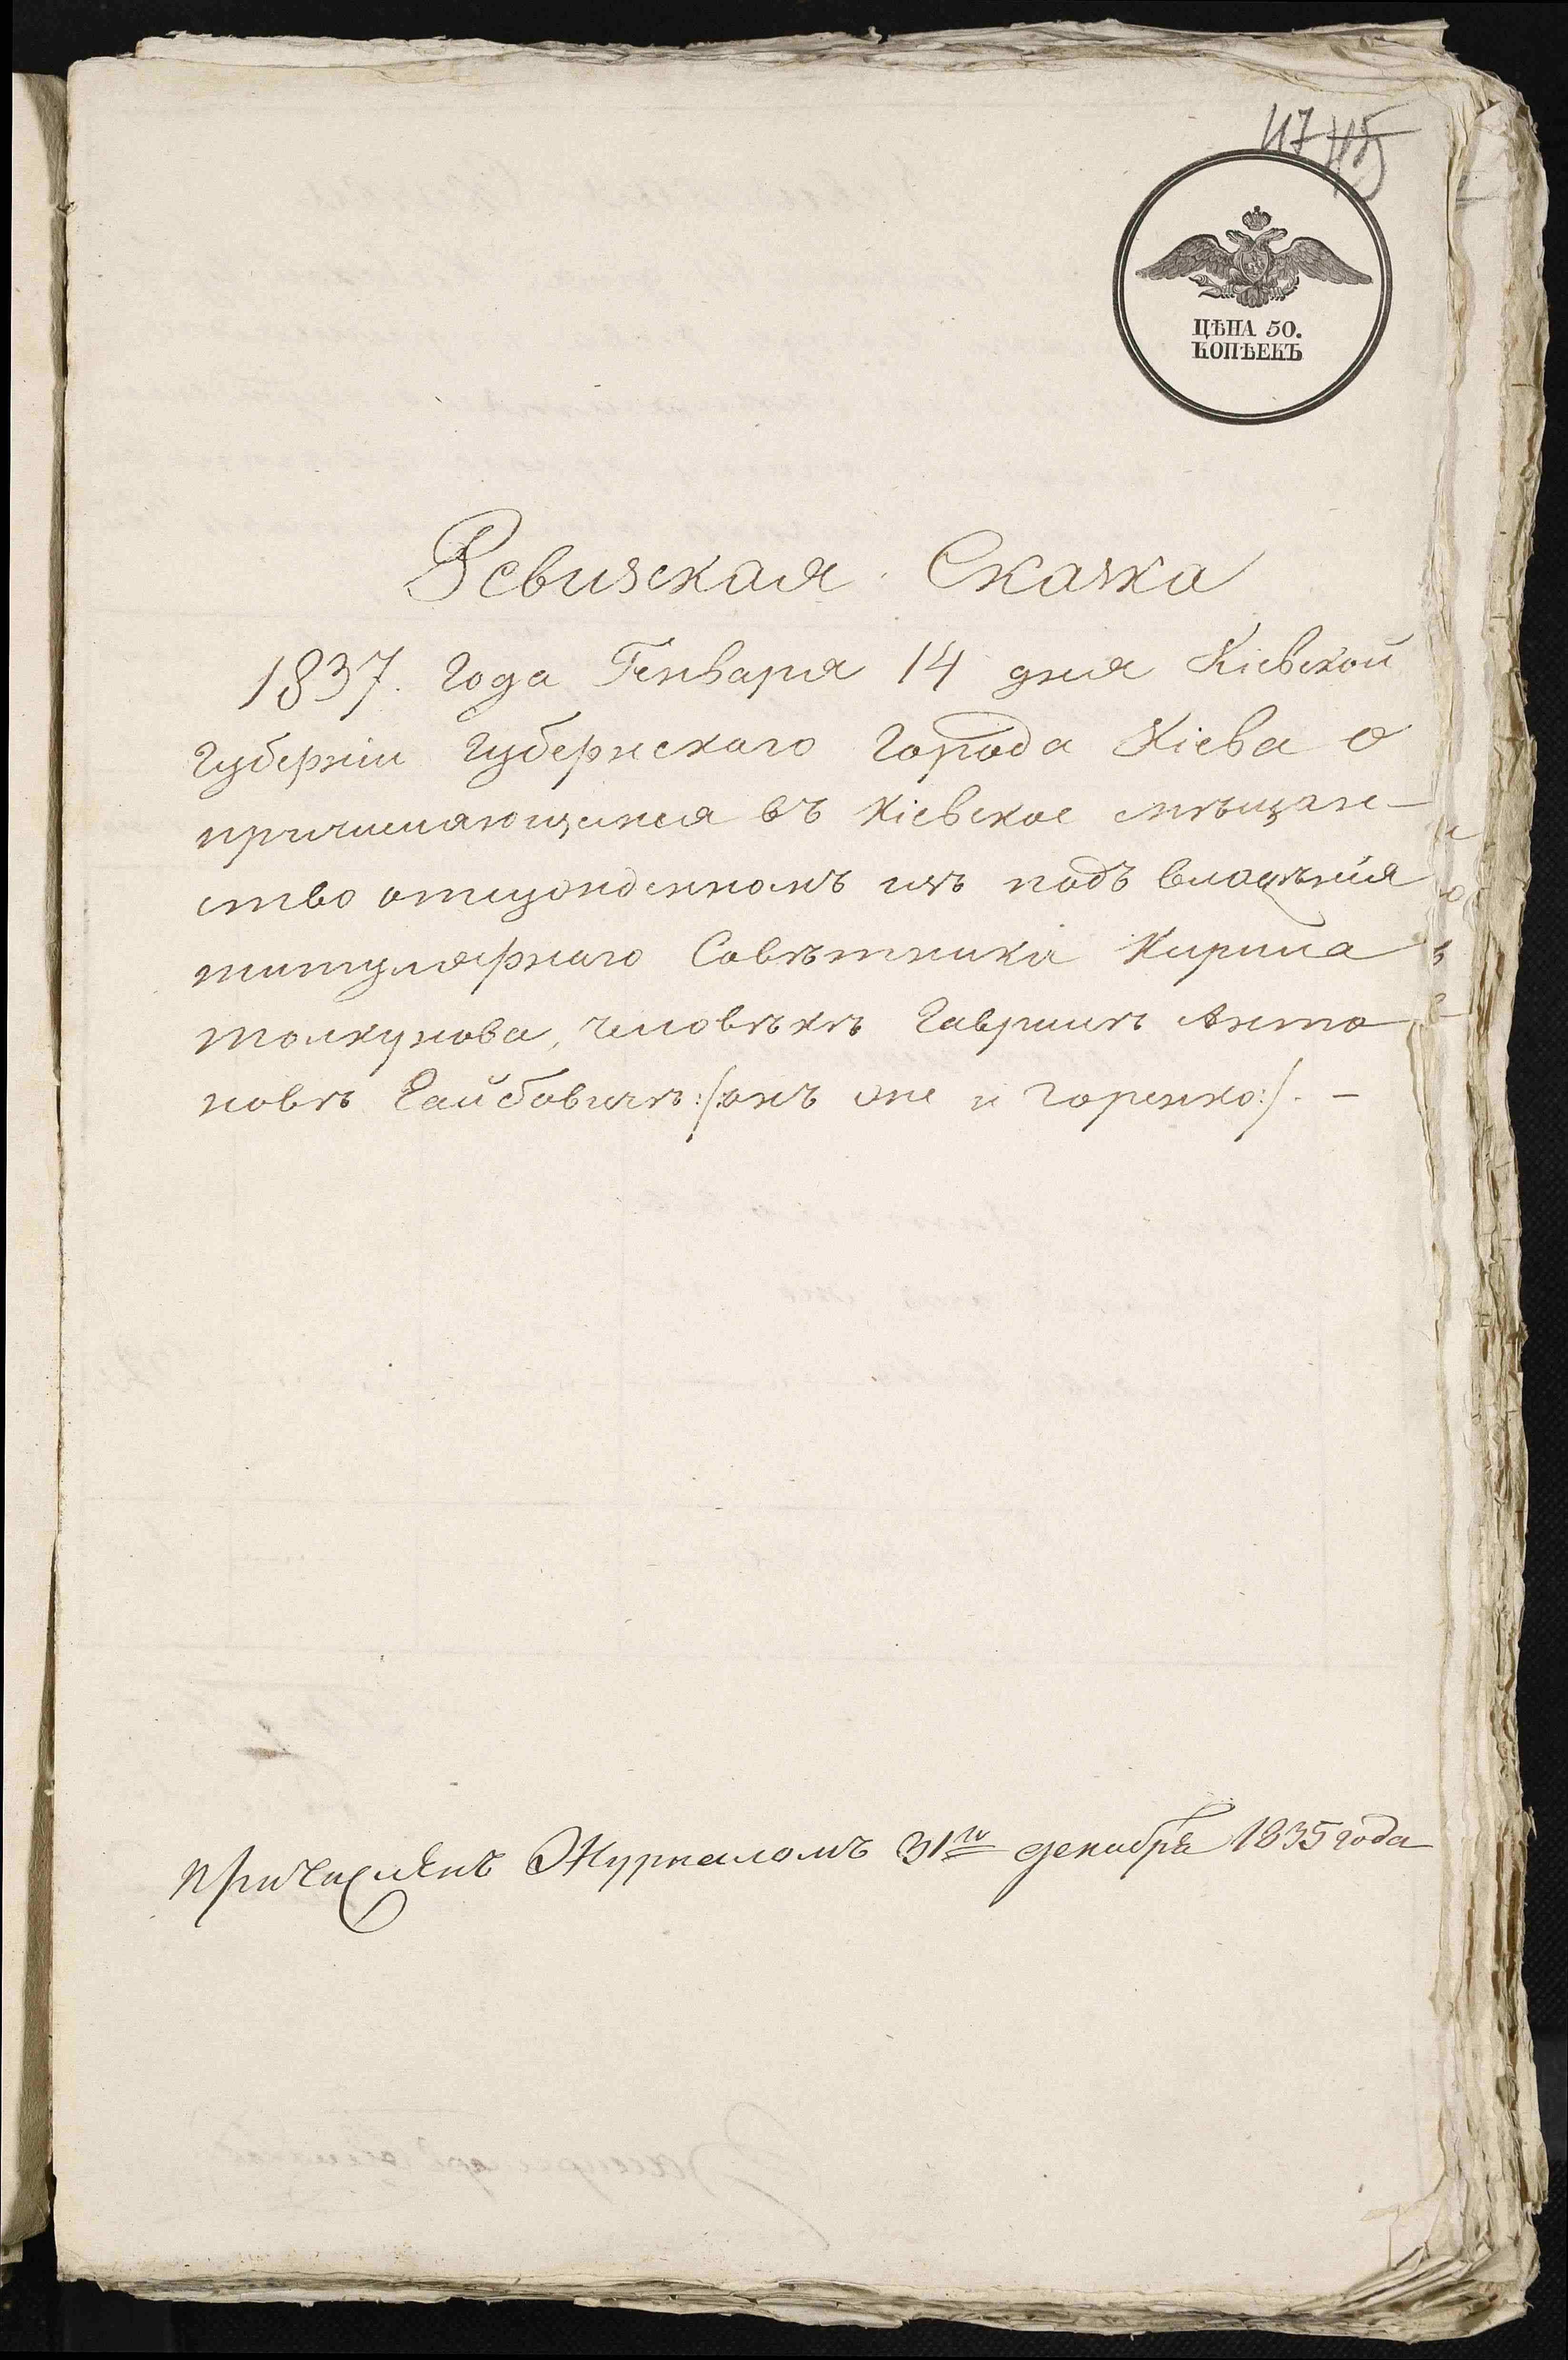 117 115
ЦѢНА 50.
КОПѢЕКЪ
Ревизская Сказка
1837. Года Генваря 14 дня Кіевской
Губерніи Губернскаго Города Кіева о
причисляющемся въ Кіевское мѣщан-
ство отсужденномъ изъ подъ владѣнія
титулярнаго Совѣтника Кирила
Толкунова, человѣкѣ Гаврилѣ Анто
новѣ Гайбовичѣ :/онъ же и Горенко:/. -
причисленъ Журналомъ 31го декабря 1835 года